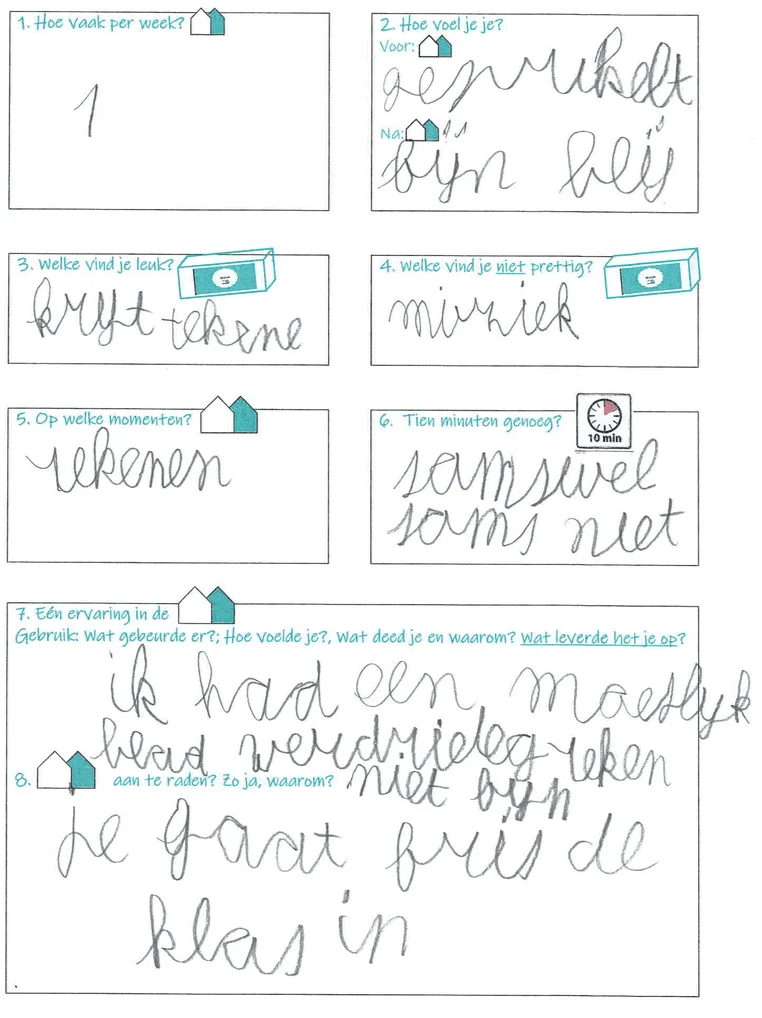 1. Hoe vaak per week?
1
2. Hoe voel je je?
Voor:
geprukelt
Na:
bijn bleij
3. Welke vind je leuk?
kryt tekene
4. Welke vind je niet prettig?
muziek
5. Op welke momenten?
rekenen
6. Tien minuten genoeg?
10 min
somswel
soms niet
7. Eén ervaring in de
Gebruik: Wat gebeurde er?; Hoe voelde je?, Wat deed je en waarom? Wat leverde het je op?
ik had een moeslyk
blaad verdrieteg reken
niet bijn
8. aan te raden? Zo ja, waarom?
je gaat fris de
klas in